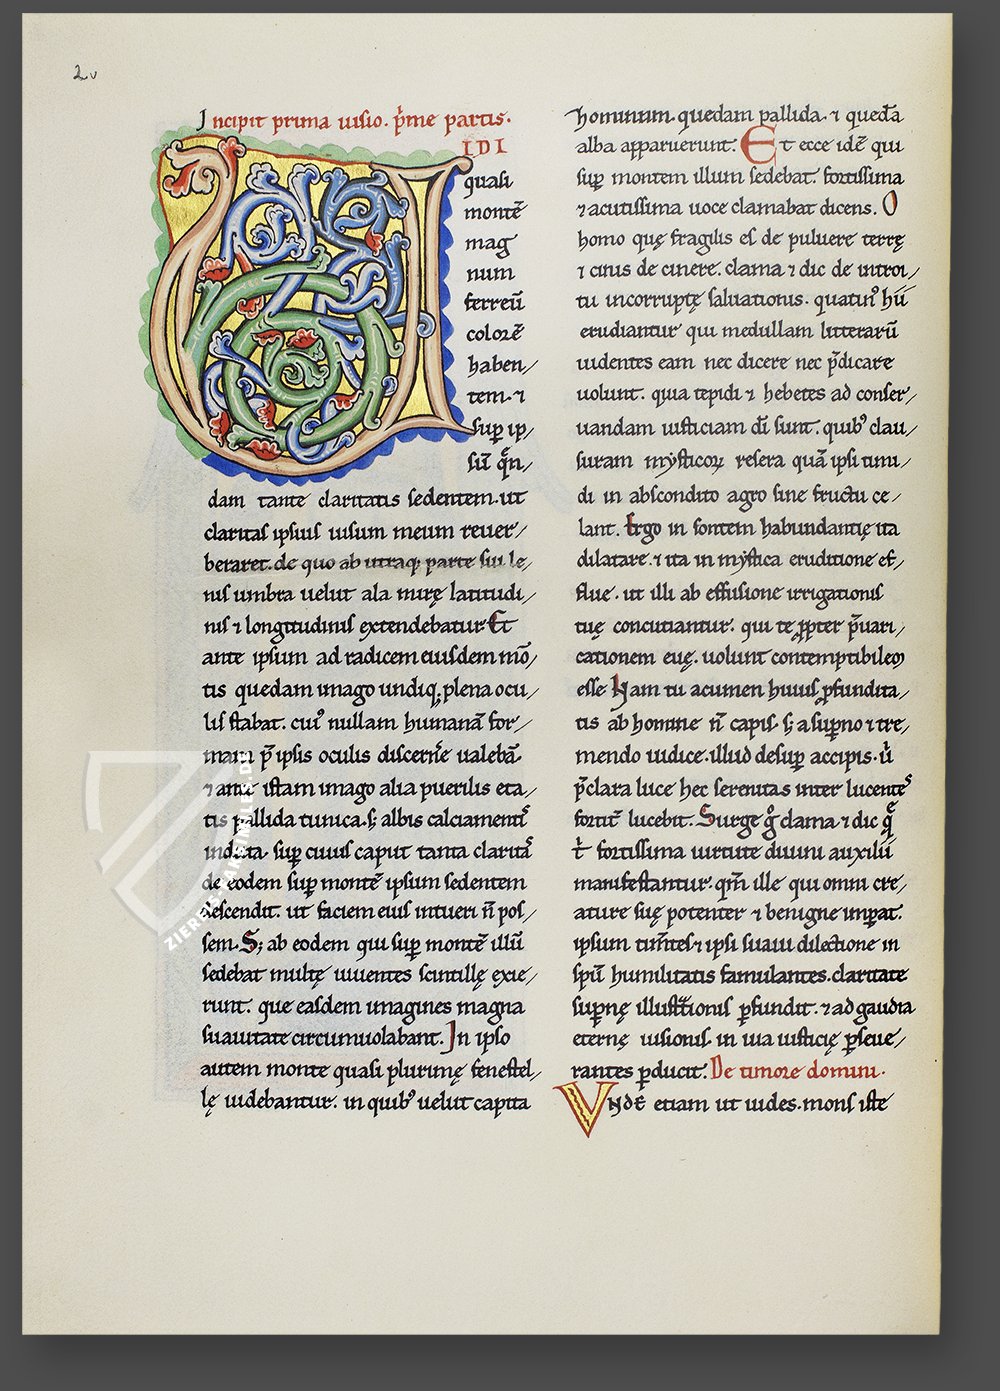 2v
Incipit prima uisio. p̄me partis.
UIDI
quasi
montē
mag
num
ferreū
colorē
haben/
tem. ⁊
sup̱ ip/
sū q̄n/
dam tante claritatis sedentem. ut
claritas ipsius uisum meum reuer/
beraret. de quo ab utraq; parte sui le/
nis umbra uelut ala mirę latitudi/
nis ⁊ longitudinis extendebatur. Et
ante ipsum ad radicem eiusdem mō/
tis quedam imago undiq; plena ocu/
lis stabat. cui⁹ nullam humanā for/
mam p̄ ipsis oculis discerne ualebā.
⁊ ante istam imago alia puerilis eta/
tis pallida tunica. s; albis calciamentis
induta. sup̱ cuius caput tanta claritas
de eodem sup̱ montē ipsum sedentem
descendit. ut faciem eius intueri n̄ pos/
sem. S; ab eodem qui sup̱ montē illū
sedebat multę uiuentes scintillę exie/
runt. que easdem imagines magna
suauitate circumuolabant. In ipso
autem monte quasi plurimę fenestel/
lę uidebantur. in quib⁹ uelut capita
hominum quedam pallida. ⁊ quedā
alba apparuerunt. Et ecce idē qui
sup̱ montem illum sedebat. fortissima
⁊ acutissima uoce clamabat dicens. O
homo quę fragilis es de puluere terrę
⁊ cinis de cinere. clama ⁊ dic de introi/
tu incorruptę saluationis. quatin⁹ hii
erudiantur qui medullam litterarū
uidentes eam nec dicere nec p̄dicare
uolunt. quia tepidi ⁊ hebetes ad conser/
uandam iusticiam dī sunt. quib⁹ clau/
suram mysticoꝝ resera quā ipsi timi/
di in abscondito agro sine fructu ce/
lant. Ergo in fontem habundantię ita
dilatare. ⁊ ita in mystica eruditione ef/
flue. ut illi ab effusione irrigationis
tuę concutiantur. qui te ꝓpter p̄uari/
cationem euę. uolunt contemptibilem
esse. Nam tu acumen huius ꝓfundita/
tis ab homine n̄ capis. s; a sup̱no ⁊ tre/
mendo iudice. illud desup̱ accipis. u̇
p̄clara luce hec serenitas inter lucentes
fortiť lucebit. Surge g̊ clama ⁊ dic q̄
t̄ fortissima uirtute diuini auxilii
manifestantur. qm̄ ille qui omni cre/
ature suę potenter ⁊ benigne imp̱at.
ipsum tim̄tes ⁊ ipsi suaui dilectione in
spū humilitatis famulantes. claritate
sup̱nę illust̄tionis p̱fundit. ⁊ ad gaudia
eternę uisionis. in uia iusticię p̱seue/
rantes p̱ducit. De timore domini.
Unde etiam ut uides. mons iste
ZIEREIS-FAKSIMILES.DE